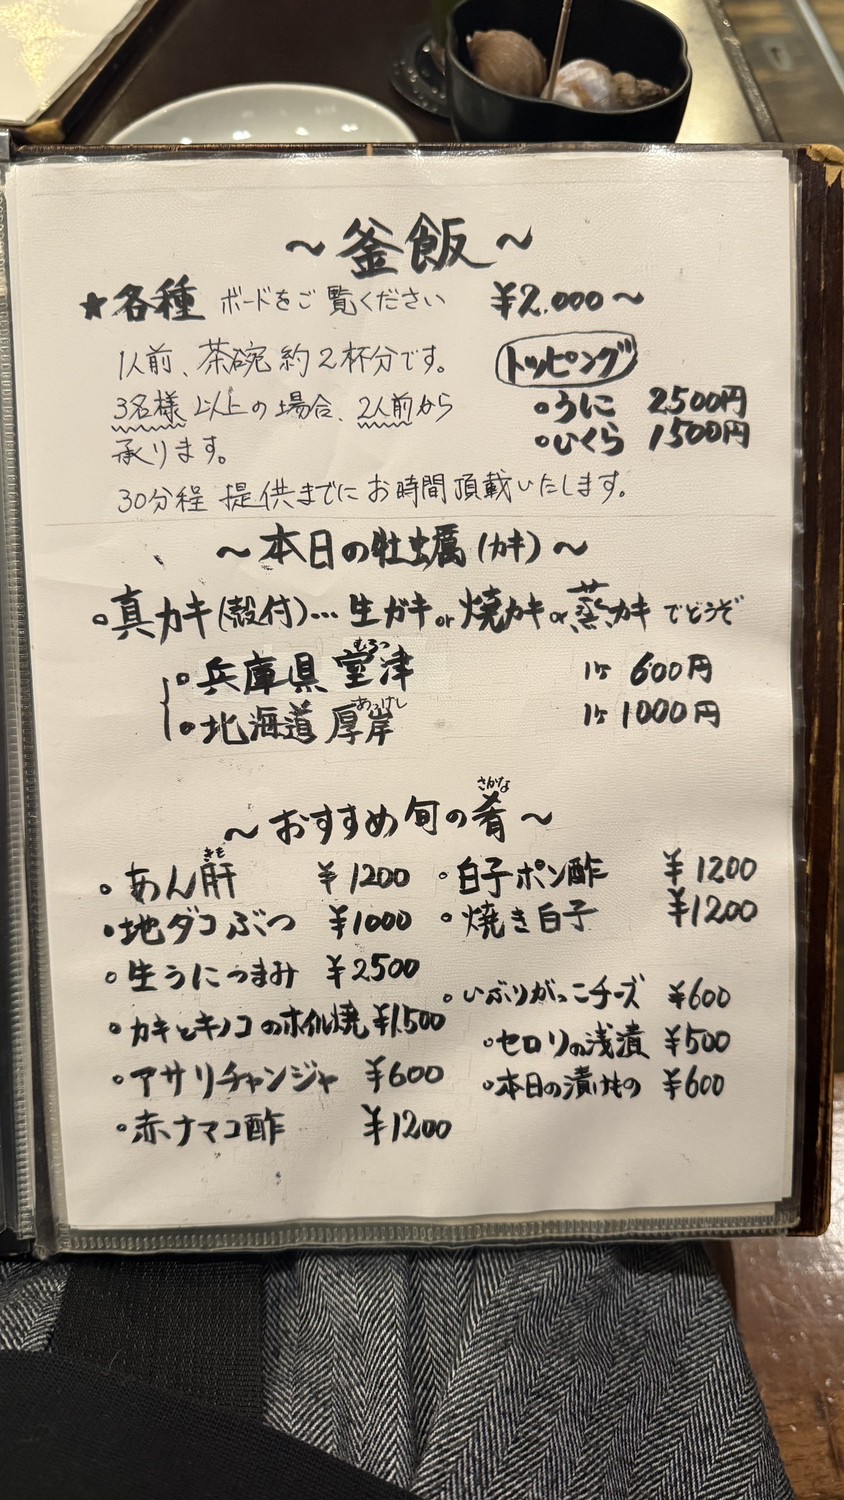 ～釜飯～
★各種 ボードをご覧ください ¥2,000～
1人前、茶碗約2杯分です。
3名様以上の場合、2人前から
承ります。
30分程提供までにお時間頂載いたします。
トッピング
・うに 2500円
・いくら 1500円
～本日の牡蠣(カキ)～
・真カキ(殻付)…生ガキor焼カキor蒸カキでどうぞ
・兵庫県 室津 1ケ 600円
むろつ
・北海道 厚岸 1ケ 1000円
あっけし
～おすすめ旬の肴～
さかな
・あん肝 ¥1200
きも
・地ダコぶつ ¥1000
・生うにつまみ ¥2500
・カキとキノコのホイル焼 ¥1,500
・アサリチャンジャ ¥600
・赤ナマコ酢 ¥1200
・白子ポン酢 ¥1200
・焼き白子 ¥1200
・いぶりがっこチーズ ¥600
・セロリの浅漬 ¥500
・本日の漬けもの ¥600